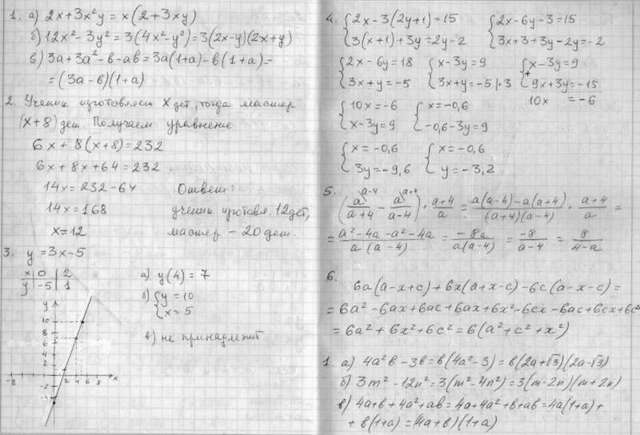 1. а) 2x+3x²y = x(2+3xy)
б) 12x²-3y² = 3(4x²-y²)=3(2x-y)(2x+y)
в) 3a+3a²-в-aв=3a(1+a)-в(1+a)=
=(3a-в)(1+a)
2. Ученик изготовляет x дет, тогда мастер
(x+8) дет. Получаем уравнение
6x+8(x+8)=232
6x+8x+64=232
14x=232-64
14x=168
x=12
Ответ:
ученик изготов. 12 дет,
мастер – 20 дет.
3. y=3x-5
x 0 2
y -5 1
а) y(4)=7
б) {y=10
x=5
в) не принадлежит
4. {2x-3(2y+1)=15
3(x+1)+3y=2y-2
{2x-6y-3=15
3x+3+3y-2y=-2
{2x-6y=18
3x+y=-5
{x-3y=9
3x+y=-5 |·3
{x-3y=9
+
9x+3y=-15
10x =-6
{10x=-6
x-3y=9
{x=-0,6
-0,6-3y=9
{x=-0,6
3y=-9,6
{x=-0,6
y=-3,2
5. (a/(a+4) - a/(a-4)) · (a+4)/a = (a(a-4)-a(a+4))/((a+4)(a-4)) · (a+4)/a =
= (a²-4a-a²-4a)/(a(a-4)) = -8a/(a(a-4)) = -8/(a-4) = 8/(4-a)
6.
6a(a-x+c)+6x(a+x-c)-6c(a-x-c)=
=6a²-6ax+6ac+6ax+6x²-6cx-6ac+6cx+6c²
=6a²+6x²+6c²=6(a²+c²+x²)
1. а) 4a²в-3в=в(4a²-3)=в(2a+√3)(2a-√3)
б) 3m²-12n²=3(m²-4n²)=3(m-2n)(m+2n)
в) 4a+в+4a²+aв=4a+4a²+в+aв=4a(1+a)+
+в(1+a)=(4a+в)(1+a)